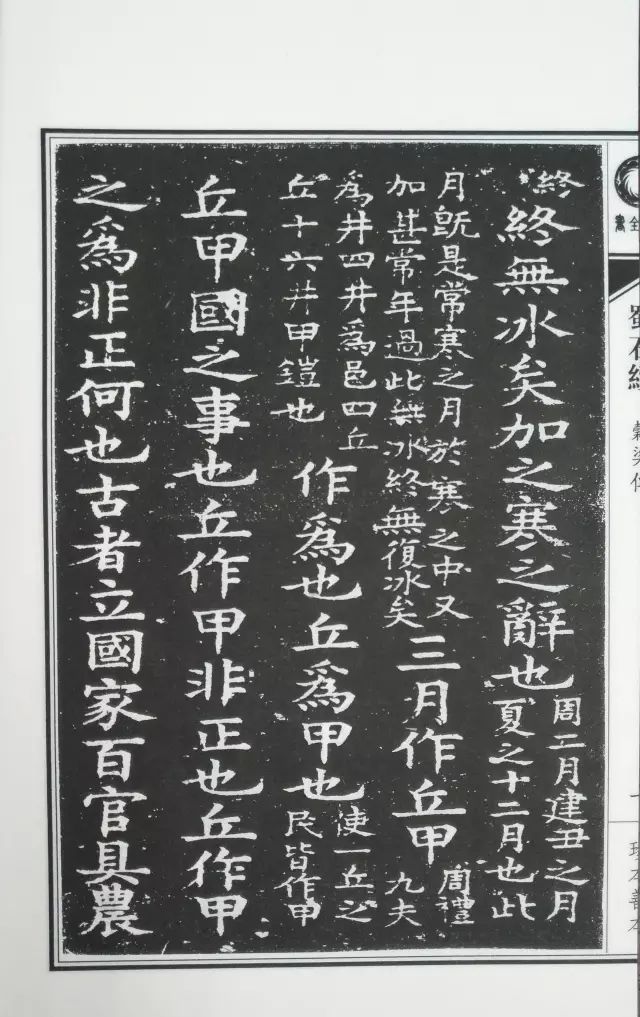 終
終無冰矣加之寒之辭也
周二月建丑之月
夏之十二月也此
月既是常寒之月於寒之中又
加甚常年過此無冰終無復冰矣
三月作丘甲
周禮
九夫
爲井四井爲邑四丘
丘十六井甲鎧也
作爲也丘爲甲也
使一丘之
民皆作甲
丘甲國之事也丘作甲非正也丘作甲
之爲非正何也古者立國家百官具農